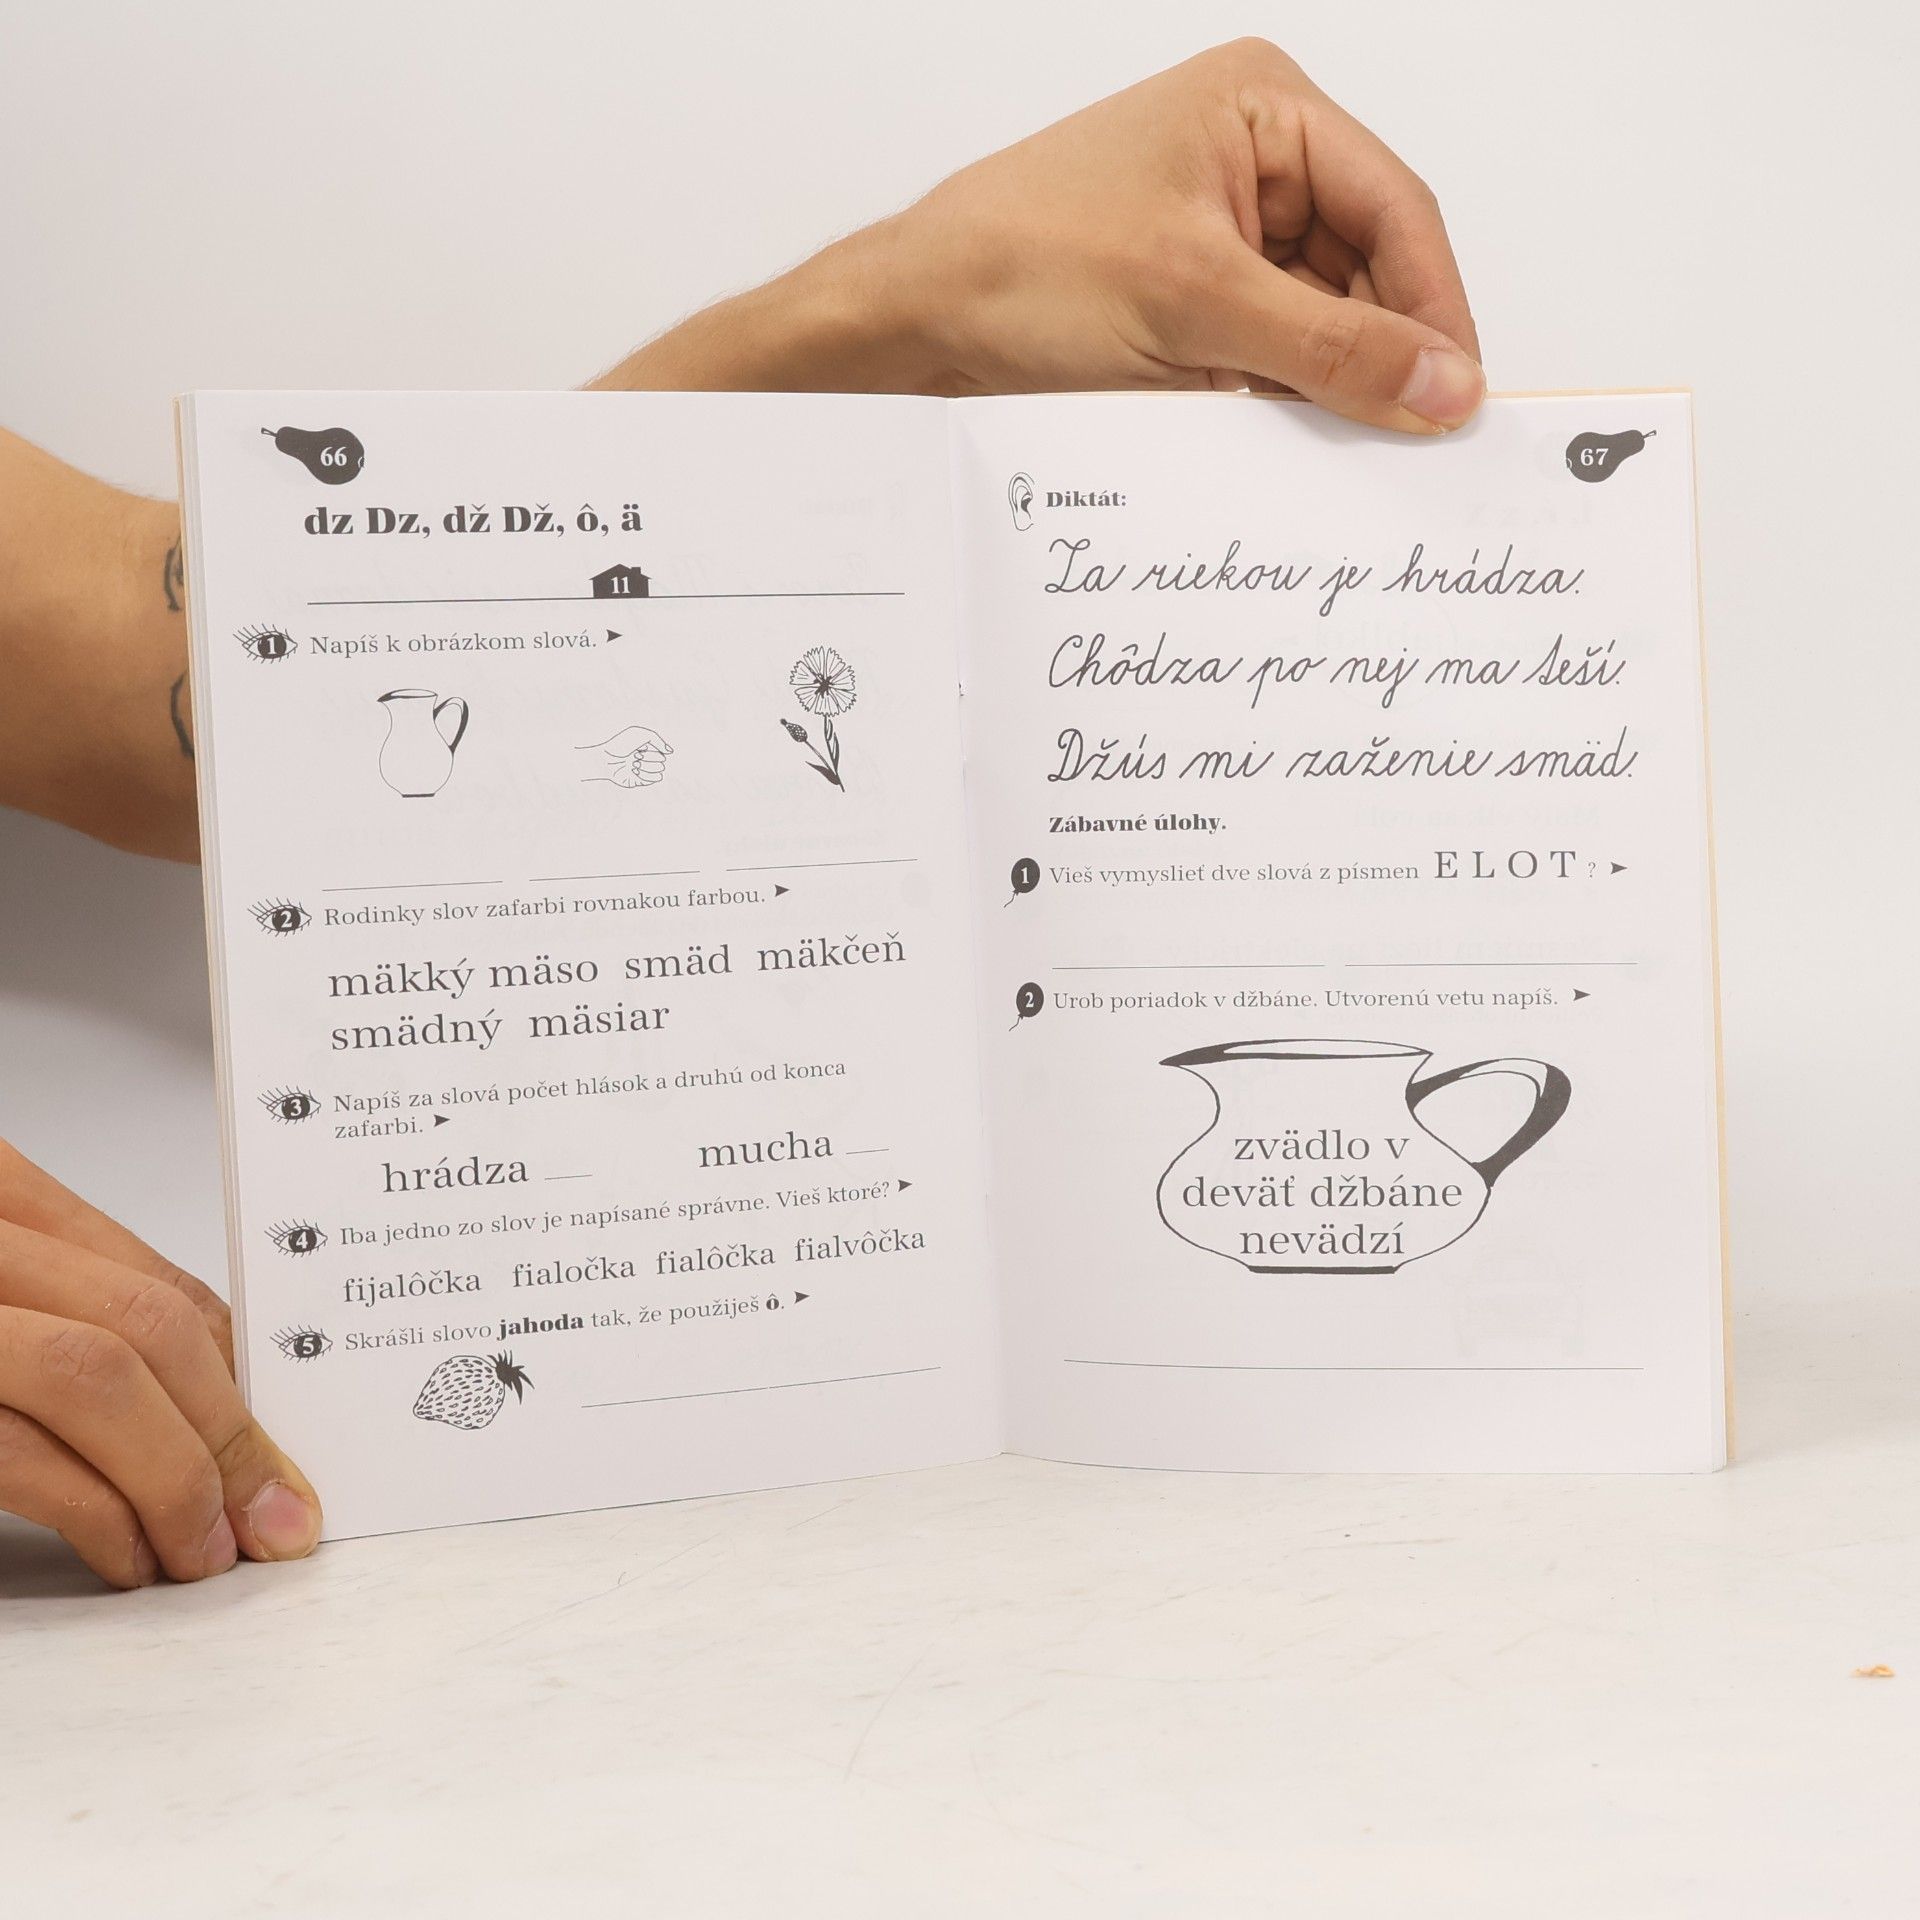 66
dz Dz, dž Dž, ô, ä
11
1 Napíš k obrázkom slová.
2 Rodinky slov zafarbi rovnakou farbou.
mäkký mäso smäd mäkčeň
smädný mäsiar
3 Napíš za slová počet hlások a druhú od konca
zafarbi.
hrádza mucha
4 Iba jedno zo slov je napísané správne. Vieš ktoré?
fijalôčka fialočka fialôčka fialvôčka
5 Skrášli slovo jahoda tak, že použiješ ô.
67
Diktát:
Za riekou je hrádza.
Chôdza po nej ma teší.
Džús mi zaženie smäd.
Zábavné úlohy.
1 Vieš vymyslieť dve slová z písmen E L O T ?
2 Urob poriadok v džbáne. Utvorenú vetu napíš.
zvädlo v
deväť džbáne
nevädzí